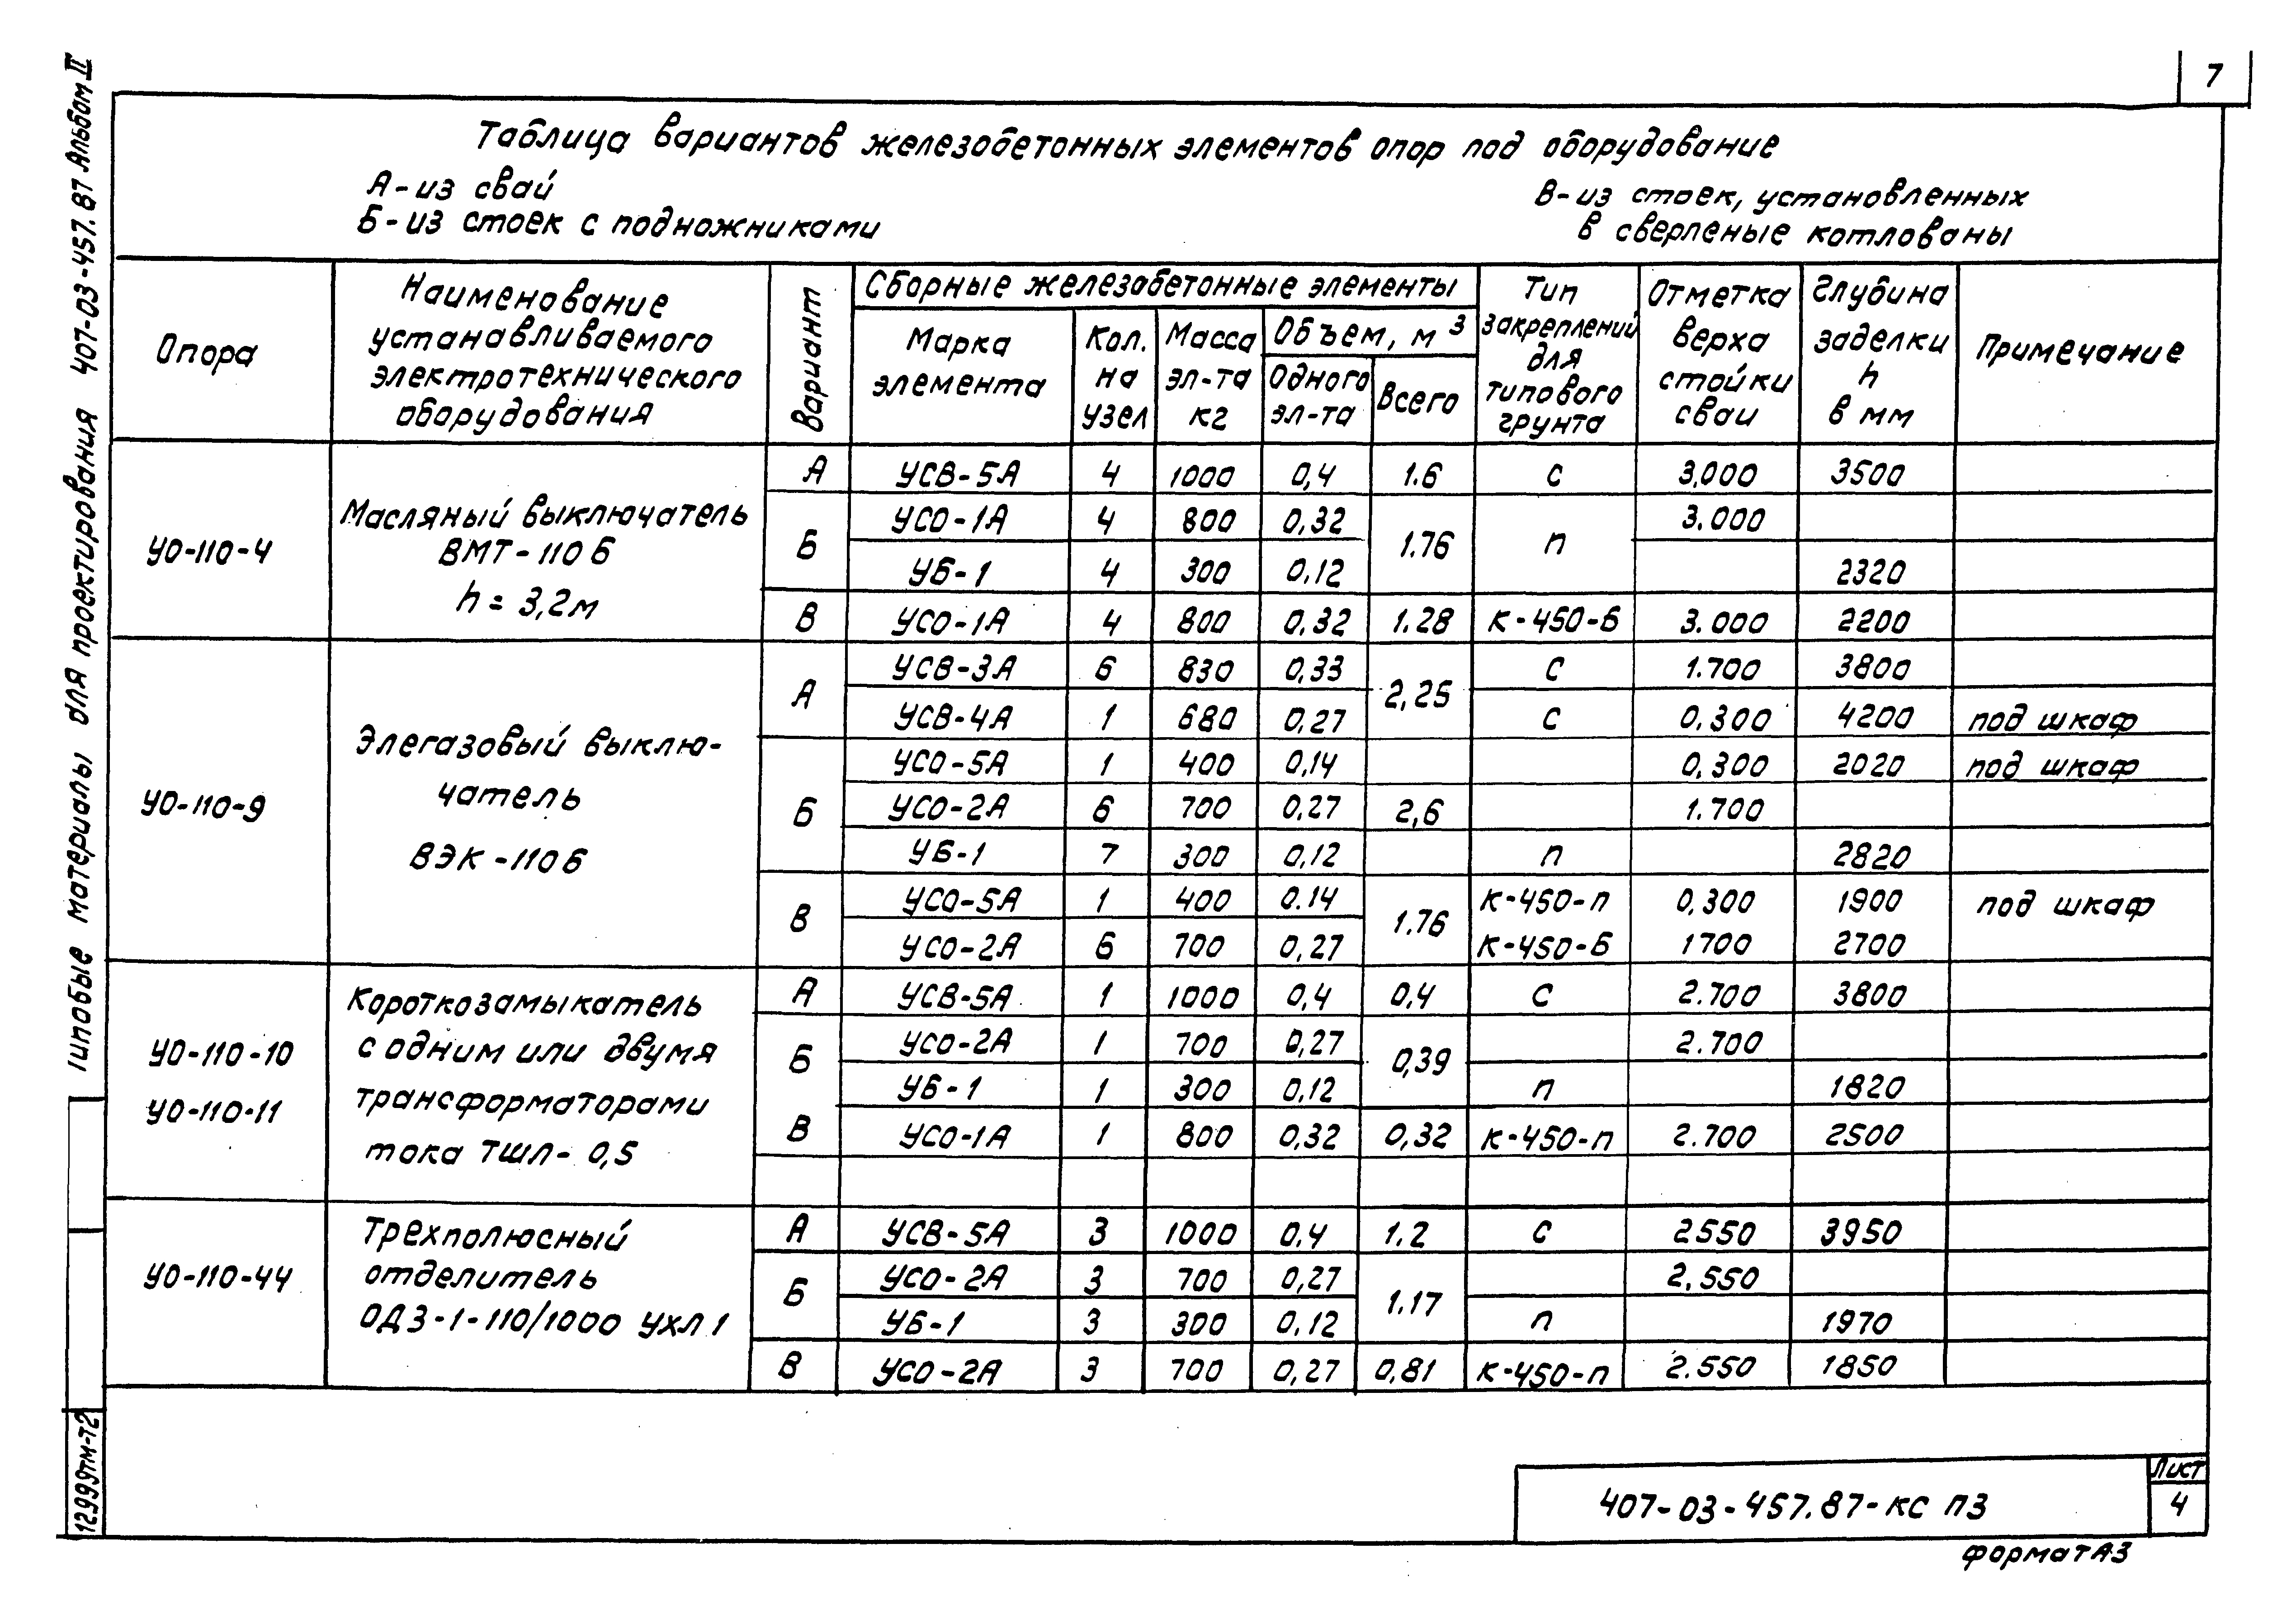 7
Таблица вариантов железобетонных элементов опор под оборудование
А-из свай
Б-из стоек с подножниками
В-из стоек, установленных
в сверленые котлованы
Опора
Наименование
устанавливаемого
электротехнического
оборудования
Вариант
Сборные железобетонные элементы
Марка
элемента
Кол.
на
узел
Масса
эл-та
кг
Объем, м3
Одного
эл-та
Всего
Тип
закреплений
для
типового
грунта
Отметка
верха
стойки
сваи
Глубина
заделки
h
в мм
Примечание
УО-110-4
Масляный выключатель
ВМТ-110Б
h = 3,2м
А УСВ-5А 4 1000 0,4 1.6 С 3,000 3500
Б УСО-1А 4 800 0,32 1.76 П 3.000
УБ-1 4 300 0,12 2320
В УСО-1А 4 800 0,32 1.28 К-450-Б 3.000 2200
УО-110-9
Элегазовый выклю-
чатель
ВЭК-110Б
А УСВ-3А 6 830 0,33 2,25 С 1.700 3800
УСВ-4А 1 680 0,27 С 0,300 4200 под шкаф
Б УСО-5А 1 400 0,14 0,300 2020 под шкаф
УСО-2А 6 700 0,27 2,6 1.700
УБ-1 7 300 0,12 П 2820
В УСО-5А 1 400 0.14 1.76 К-450-П 0,300 1900 под шкаф
УСО-2А 6 700 0,27 К-450-Б 1700 2700
УО-110-10
УО-110-11
Короткозамыкатель
с одним или двумя
трансформаторами
тока ТШЛ-0,5
А УСВ-5А 1 1000 0,4 0,4 С 2.700 3800
Б УСО-2А 1 700 0,27 0,39 2.700
УБ-1 1 300 0,12 П 1820
В УСО-1А 1 800 0,32 0,32 К-450-П 2.700 2500
УО-110-44
Трехполюсный
отделитель
ОДЗ-1-110/1000 УХЛ1
А УСВ-5А 3 1000 0,4 1.2 С 2550 3950
Б УСО-2А 3 700 0,27 1.17 2,550
УБ-1 3 300 0,12 П 1970
В УСО-2А 3 700 0,27 0,81 К-450-П 2.550 1850
407-03-457.87-КС ПЗ
Лист
4
Формат А3
Типовые материалы для проектирования 407-03-457.87 Альбом II
12999тм-т2